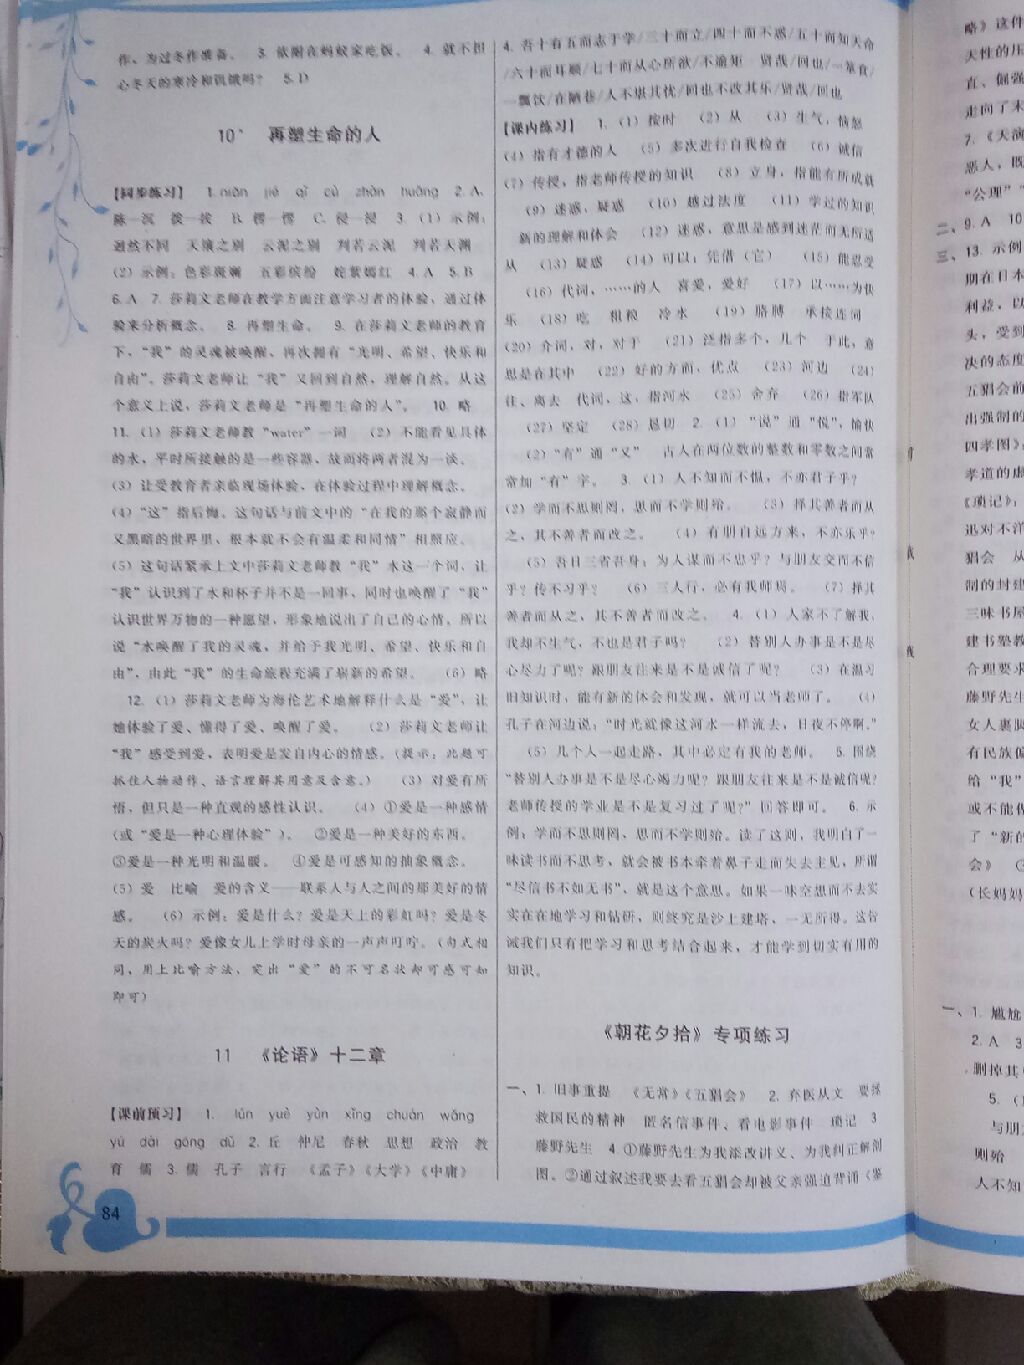 作,为过冬作准备。 3. 依附在蚂蚁家吃饭。 4. 就不担
心冬天的寒冷和饥饿吗? 5. D
10 再塑生命的人
【同步练习】 1. niǎn jié qǐ cù zhǎn huǎng 2. A.
陈—沉 拨—拔 B. 锲—愣 C. 侵—浸 3. (1) 示例:
迥然不同 天壤之别 云泥之别 判若云泥 判若天渊
(2) 示例:色彩斑斓 五彩缤纷 姹紫嫣红 4. A 5. B
6. A 7. 莎莉文老师在教学方面注意学习者的体验,通过体
验来分析概念。 8. 再塑生命。 9. 在莎莉文老师的教育
下,“我”的灵魂被唤醒,再次拥有“光明、希望、快乐和
自由”。莎莉文老师让“我”又回到自然,理解自然。从这
个意义上说,莎莉文老师是“再塑生命的人”。 10. 略
11. (1) 莎莉文老师教“water”一词 (2) 不能看见具体
的水,平时所接触的是一些容器,故而将两者混为一谈。
(3) 让受教育者亲临现场体验,在体验过程中理解概念。
(4) “这”指后悔。这句话与前文中的“在我的那个寂静而
又黑暗的世界里,根本就不会有温柔和同情”相照应。
(5) 这句话紧承上文中莎莉文老师教“我”水这一个词,让
“我”认识到了水和杯子并不是一回事,同时也唤醒了“我”
认识世界万物的一种愿望,形象地说出了自己的心情。所以
说“水唤醒了我的灵魂,并给予我光明、希望、快乐和自
由”,由此“我”的生命旅程充满了崭新的希望。 (6) 略
12. (1) 莎莉文老师为海伦艺术地解释什么是“爱”,让
她体验了爱、懂得了爱、唤醒了爱。 (2) 莎莉文老师让
“我”感受到爱,表明爱是发自内心的情感。(提示:此题可
抓住人物动作、语言理解其用意及含意。) (3) 对爱有所
悟,但只是一种直观的感性认识。 (4) ①爱是一种感情
(或“爱是一种心理体验”)。 ②爱是一种美好的东西。
③爱是一种光明和温暖。 ④爱是可感知的抽象概念。
(5) 爱 比喻 爱的含义——联系人与人之间的那美好的情
感。 (6) 示例:爱是什么?爱是天上的彩虹吗?爱是冬
天的炭火吗?爱像女儿上学时母亲的一声声叮咛。(句式相
同,用上比喻方法,突出“爱”的不可名状却可感可知
即可)
11 《论语》十二章
【课前预习】 1. lún yuè yùn xǐng chuán wǎng
yú dài gōng dǔ 2. 丘 仲尼 春秋 思想 政治 教
育 儒 3. 儒 孔子 言行 《孟子》《大学》《中庸》
84
4. 吾十有五而志于学/三十而立/四十而不惑/五十而知天命
/六十而耳顺/七十而从心所欲/不逾矩 贤哉/回也/一箪食/
一瓢饮/在陋巷/人不堪其忧/回也不改其乐/贤哉/回也
【课内练习】 1. (1) 按时 (2) 从 (3) 生气,愤怒
(4) 指有才德的人 (5) 多次进行自我检查 (6) 诚信
(7) 传授,指老师传授的知识 (8) 立身,指能有所成就
(9) 迷惑,疑惑 (10) 越过法度 (11) 学过的知识
新的理解和体会 (12) 迷惑,意思是感到迷茫而无所适
从 (13) 疑惑 (14) 可以;凭借(它) (15) 能忍受
(16) 代词,……的人 喜爱,爱好 (17) 以……为快
乐 (18) 吃 粗粮 冷水 (19) 胳膊 承接连词
(20) 介词,对,对于 (21) 泛指多个,几个 于此,意
思是在其中 (22) 好的方面,优点 (23) 河边 (24)
往、离去 代词,这,指河水 (25) 舍弃 (26) 指军队
(27) 坚定 (28) 恳切 2. (1) “说”通“悦”,愉快
(2) “有”通“又” 古人在两位数的整数和零数之间常
常加“有”字。 3. (1) 人不知而不愠,不亦君子乎?
(2) 学而不思则罔,思而不学则殆。 (3) 择其善者而从
之,其不善者而改之。 (4) 有朋自远方来,不亦乐乎?
(5) 吾日三省吾身:为人谋而不忠乎?与朋友交而不信
乎?传不习乎? (6) 三人行,必有我师焉。 (7) 择其
善者而从之,其不善者而改之。 4. (1) 人家不了解我,
我却不生气,不也是君子吗? (2) 替别人办事是不是尽
心尽力了呢?跟朋友往来是不是诚信了呢? (3) 在温习
旧知识时,能有新的体会和发现,就可以当老师了。 (4)
孔子在河边说:“时光就像这河水一样流去,日夜不停啊。”
(5) 几个人一起走路,其中必定有我的老师。 5. 围绕
“替别人办事是不是尽心竭力呢?跟朋友往来是不是诚信呢?
老师传授的学业是不是复习过了呢?”回答即可。 6. 示
例:学而不思则罔,思而不学则殆。读了这则,我明白了一
味读书而不思考,就会被书本牵着鼻子走而失去主见,所谓
“尽信书不如无书”,就是这个意思。如果一味空想而不去实
实在在地学习和钻研,则终究是沙上建塔,一无所得。这告
诫我们只有把学习和思考结合起来,才能学到切实有用的
知识。
《朝花夕拾》专项练习
一、1. 旧事重提 《无常》《五猖会》 2. 弃医从文 要拯
救国民的精神 匿名信事件、看电影事件 琐记 3
藤野先生 4. ①藤野先生为我添改讲义、为我纠正解剖
图。②通过叙述我要去看五猖会却被父亲强迫背诵《鉴
略》这件
天性的压
直、倔强
走向了末
7. 《天演
恶人,既
“公理”
二、9. A 10
三、13. 示例
期在日本
利益,以
头,受到
决的态度
五猖会前
出强制的
四孝图》
孝道的虚
《琐记》:
迅对不洋
猖会 从
制的封建
三味书屋
建书塾教
合理要求
藤野先生
女人裹脚
有民族偏
给“我”
或不能作
了“新的
会》 ③
(长妈妈
一、1. 尴尬
2. A 3
删掉其
5. (
与朋
则殆
人不知